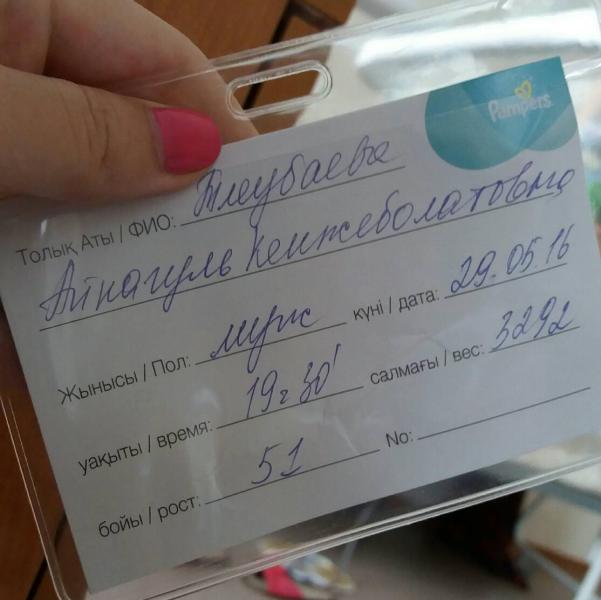 Pampers
Толық Аты / ФИО: Тлеубаева
Айнагуль Кенжеболатовна
Жынысы / Пол: муж күні / дата: 29.05.16
уақыты / время: 19ч 30' салмағы / вес: 3292
бойы / рост: 51 No: